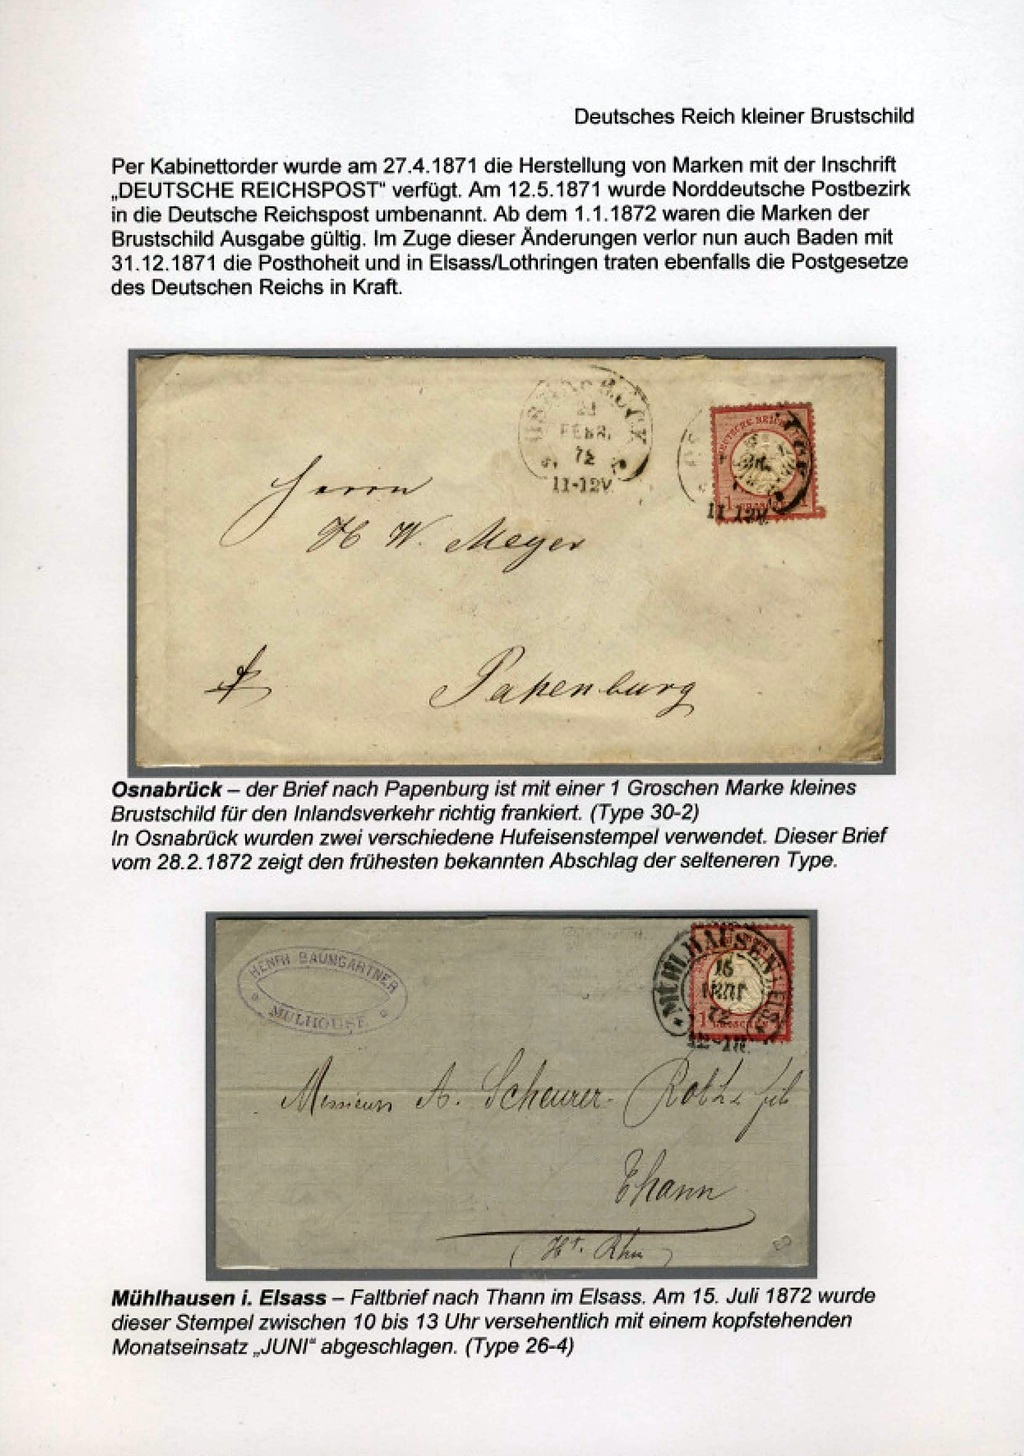 Deutsches Reich kleiner Brustschild
Per Kabinettorder wurde am 27.4.1871 die Herstellung von Marken mit der Inschrift
„DEUTSCHE REICHSPOST" verfügt. Am 12.5.1871 wurde Norddeutsche Postbezirk
in die Deutsche Reichspost umbenannt. Ab dem 1.1.1872 waren die Marken der
Brustschild Ausgabe gültig. Im Zuge dieser Änderungen verlor nun auch Baden mit
31.12.1871 die Posthoheit und in Elsass/Lothringen traten ebenfalls die Postgesetze
des Deutschen Reichs in Kraft.
OSNABRÜCK
FEBR.
72
11-12V.
11-12V.
Herrn
H W. Meyer
Papenburg
Osnabrück – der Brief nach Papenburg ist mit einer 1 Groschen Marke kleines
Brustschild für den Inlandsverkehr richtig frankiert. (Type 30-2)
In Osnabrück wurden zwei verschiedene Hufeisenstempel verwendet. Dieser Brief
vom 28.2.1872 zeigt den frühesten bekannten Abschlag der selteneren Type.
HENRI BAUMGARTNER
MULHOUSE
MÜHLHAUSEN i. ELS.
JUNI
72
Messieurs A. Scheurer-Rott & fils
Thann
(Ht. Rhin)
Mühlhausen i. Elsass – Faltbrief nach Thann im Elsass. Am 15. Juli 1872 wurde
dieser Stempel zwischen 10 bis 13 Uhr versehentlich mit einem kopfstehenden
Monatseinsatz „JUNI" abgeschlagen. (Type 26-4)